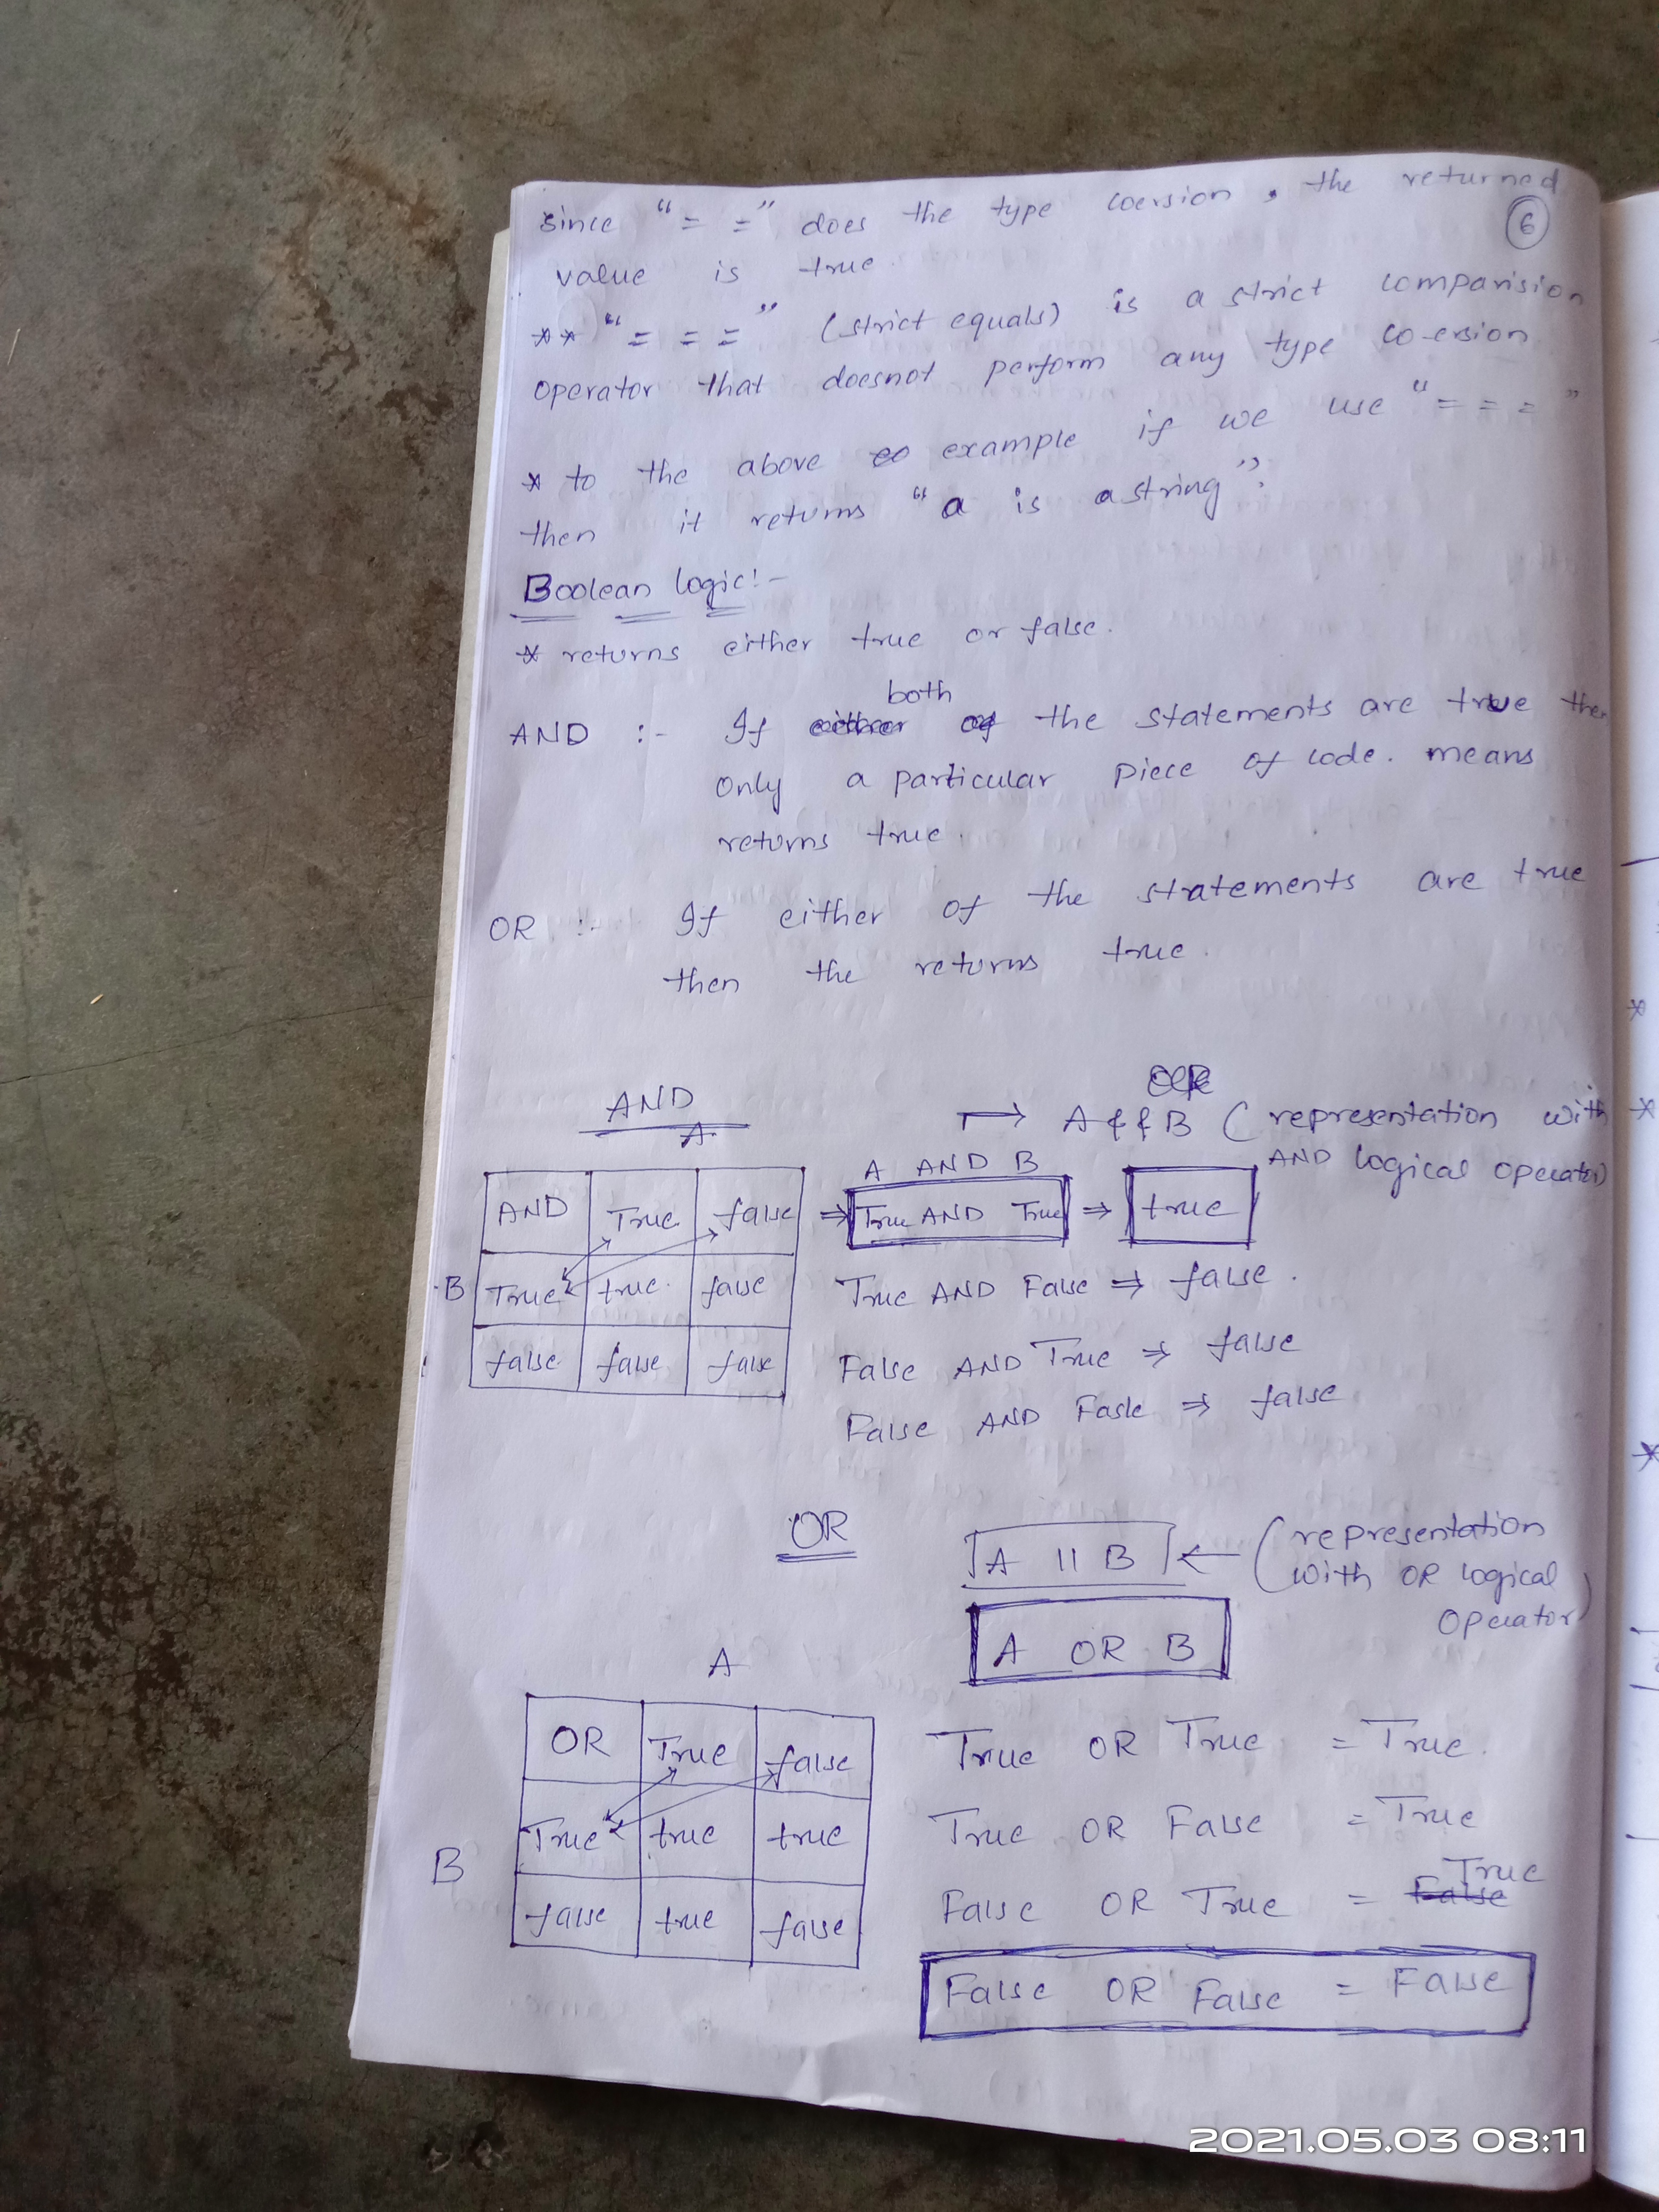 since "= =" does the type coersion, the returned
6
value is true.
** "= = =" (strict equals) is a strict comparision
operator that doesnot perform any type co-ersion
* to the above example if we use "= = ="
then it returns "a is a string".
Boolean logic:-
* returns either true or false.
both
AND :- If either of the statements are true then
only a particular piece of code. means
returns true.
OR :- If either of the statements are true
then the returns true.
AND
OR
→ A && B (representation with
AND logical operator)
A
A AND B
AND True false ⇒ True AND True ⇒ true
B True true false
True AND False ⇒ false.
false false false
False AND True ⇒ false
False AND Fasle ⇒ false
OR
A || B ← (representation
with OR logical
operator)
A OR B
A
OR True false
True OR True = True.
B True true true
True OR False = True
True
False OR True = False
false true false
False OR False = False
2021.05.03 08:11